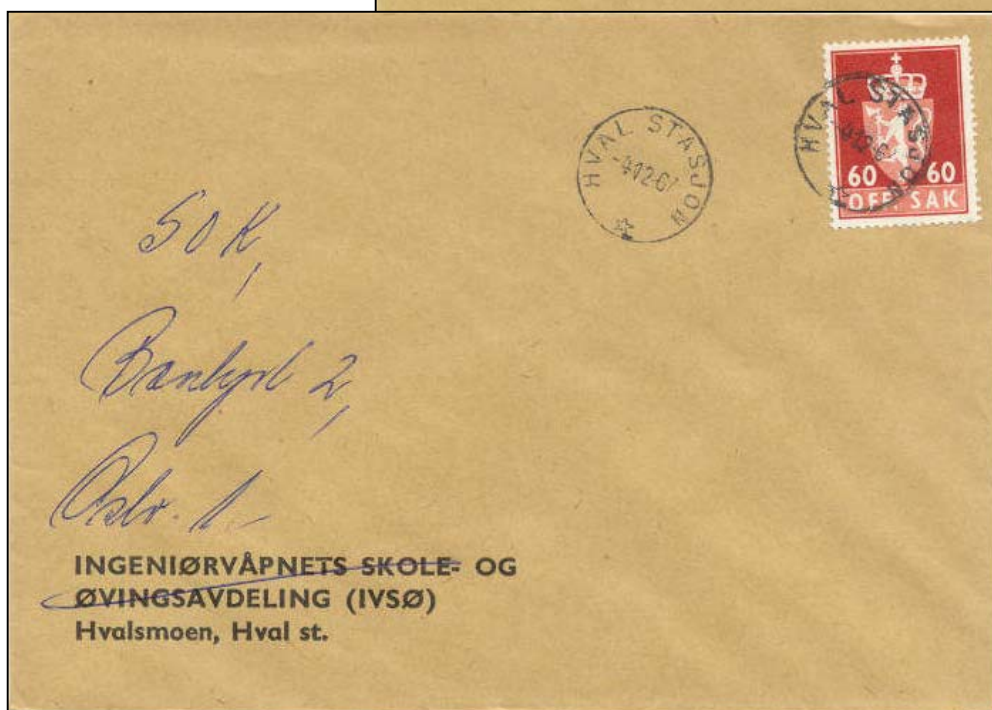 HVAL STASJON
-4.12-6
HVAL STASJON
60 60
OFF. SAK
SOK,
2,
Oslo. 1
INGENIØRVÅPNETS SKOLE- OG
ØVINGSAVDELING (IVSØ)
Hvalsmoen, Hval st.